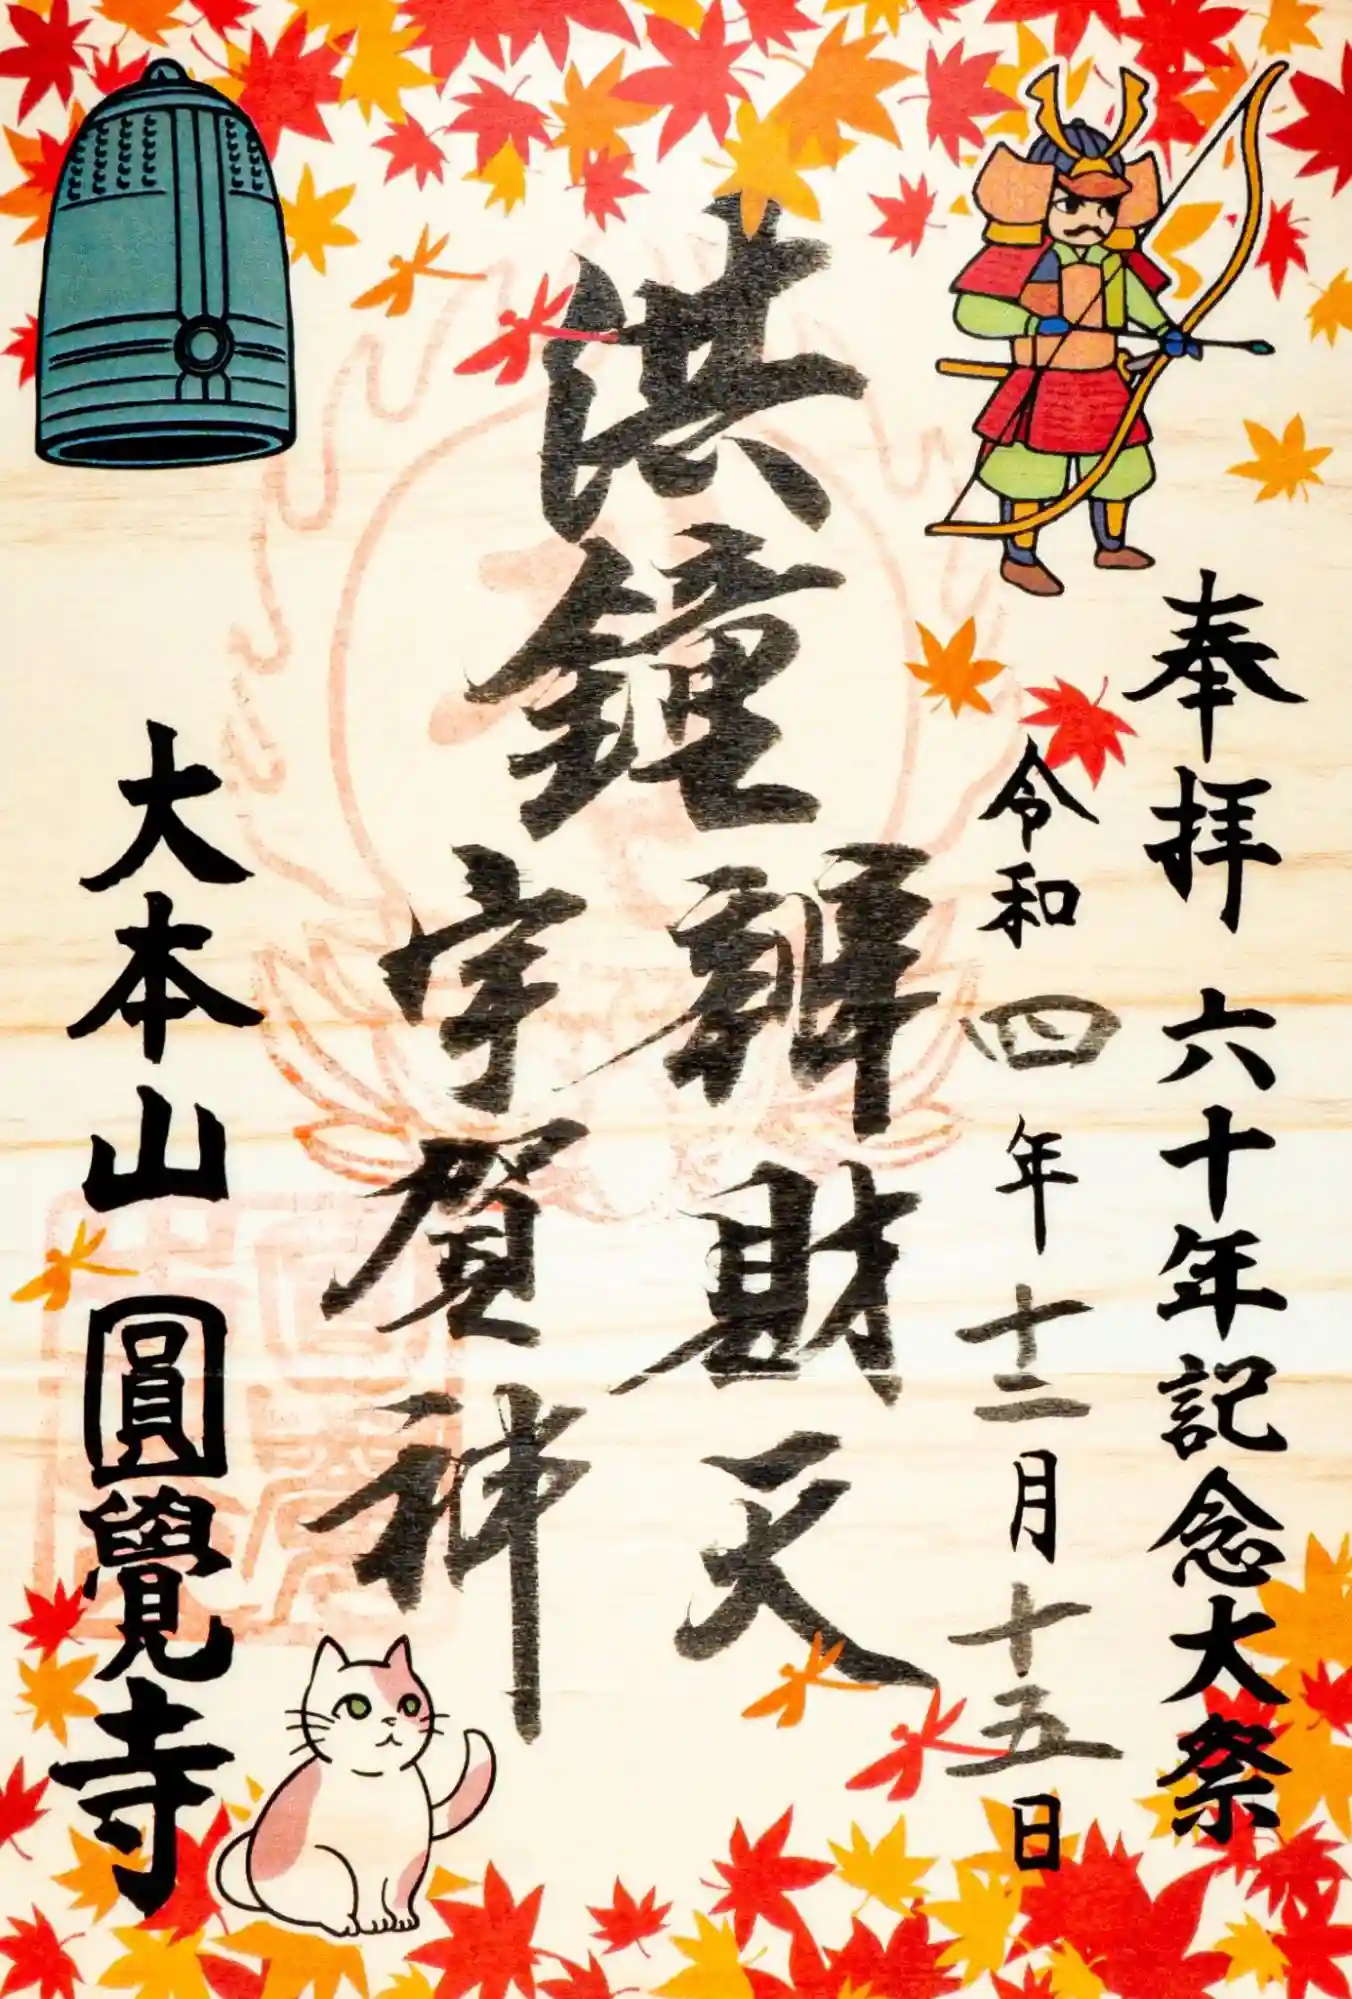 奉拝 六十年記念大祭
令和四年十二月十五日
洪鐘
辨財天
宇賀神
大本山 圓覺寺